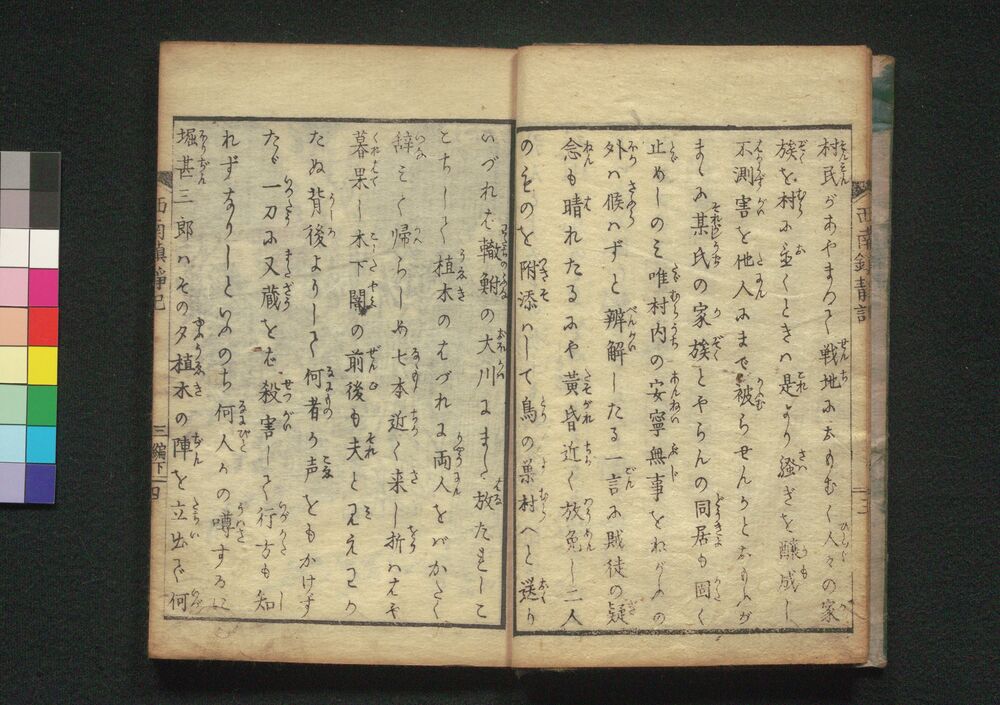 村民があやまつて戦地におもむく人々の家
族を村に置くときハ是より騒ぎを醸成し
不測害を他人にまで被らせんかとおもへバが
まゝに某氏の家族とやらんの同居も固く
止めしのミ唯村内の安寧無事をねがふの
外ハ候ハずと辨解したる一言に賊徒の疑
念も晴れたるにや黄昏近く放免し二人
のものを附添ハして鳥の巣村へと送り
西南鎮静記
いづれも轍鮒の大川にまた放たれしこ
こちして植木のはづれに両人をバかたく
辞ミて帰らしめ七本近く来し折ハはや
暮果し木下闇の前後も夫と見えわか
たぬ背後よりして何者か声をもかけず
たゞ一刀に又蔵をバ殺害して行方も知
れずなりしといふのち何人かの噂するに
堀甚三郎ハその夕植木の陣を立出て何
西南鎮静記
三編下
四